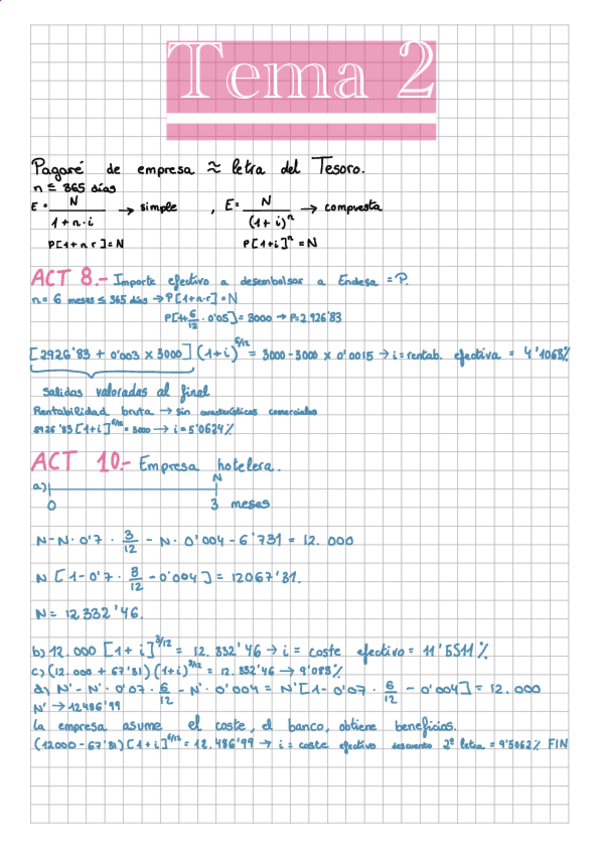 Tema 2
Pagaré de empresa ≈ letra del Tesoro.
n ≤ 365 días
E = N / (1 + n·i) → simple , E = N / (1+i)^n → compuesta
P[1+n·r] = N P[1+i]^n = N
ACT 8.- Importe efectivo a desembolsar a Endesa = P.
n = 6 meses ≤ 365 días → P[1+n·r] = N
P[1+ 6/12 · 0'05] = 3000 → P = 2.926'83
[2926'83 + 0'003 x 3000] (1+i)^6/12 = 3000 - 3000 x 0'0015 → i = rentab. efectiva = 4'1068%
salidas valoradas al final
Rentabilidad bruta → sin características comerciales
2926'83 [1+i]^6/12 = 3000 → i = 5'0624%
ACT 10.- Empresa hotelera.
N
a)
0 3 meses
N - N · 0'7 · 3/12 - N · 0'004 - 6'731 = 12.000
N [1 - 0'7 · 3/12 - 0'004] = 12067'31.
N = 12.332'46.
b) 12.000 [1+i]^3/12 = 12.332'46 → i = coste efectivo = 11'5511%
c) (12.000 + 67'31) (1+i)^3/12 = 12.332'46 → 9'083%
d) N' - N' · 0'07 · 6/12 - N' · 0'004 = N' [1 - 0'07 · 6/12 - 0'004] = 12.000
N' → 12486'99
la empresa asume el coste, el banco, obtiene beneficios.
(12000 - 67'31) [1+i]^6/12 = 12.486'99 → i = coste efectivo descuento 2ª letra = 9'5062% FIN